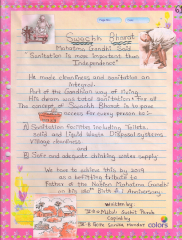 Swachh Bharat
Mahatma Gandhi Said
"Sanitation is more important than
Independence"
He made cleanliness and sanitation an
integral
Part of the Gandhian way of living.
His dream was total sanitation for all
The concept of Swachh Bharat is to pave
access for every person to:-
1) Sanitation facilities including Toilets,
Solid and Liquid Waste Disposal systems
Village cleanliness
and
2) Safe and adequate drinking water supply
We have to achieve this by 2019
as a befitting tribute to
Father of the Nation Mahatma Gandhi
on his 150th Birth Anniversary.
Written by:
Capt
colors